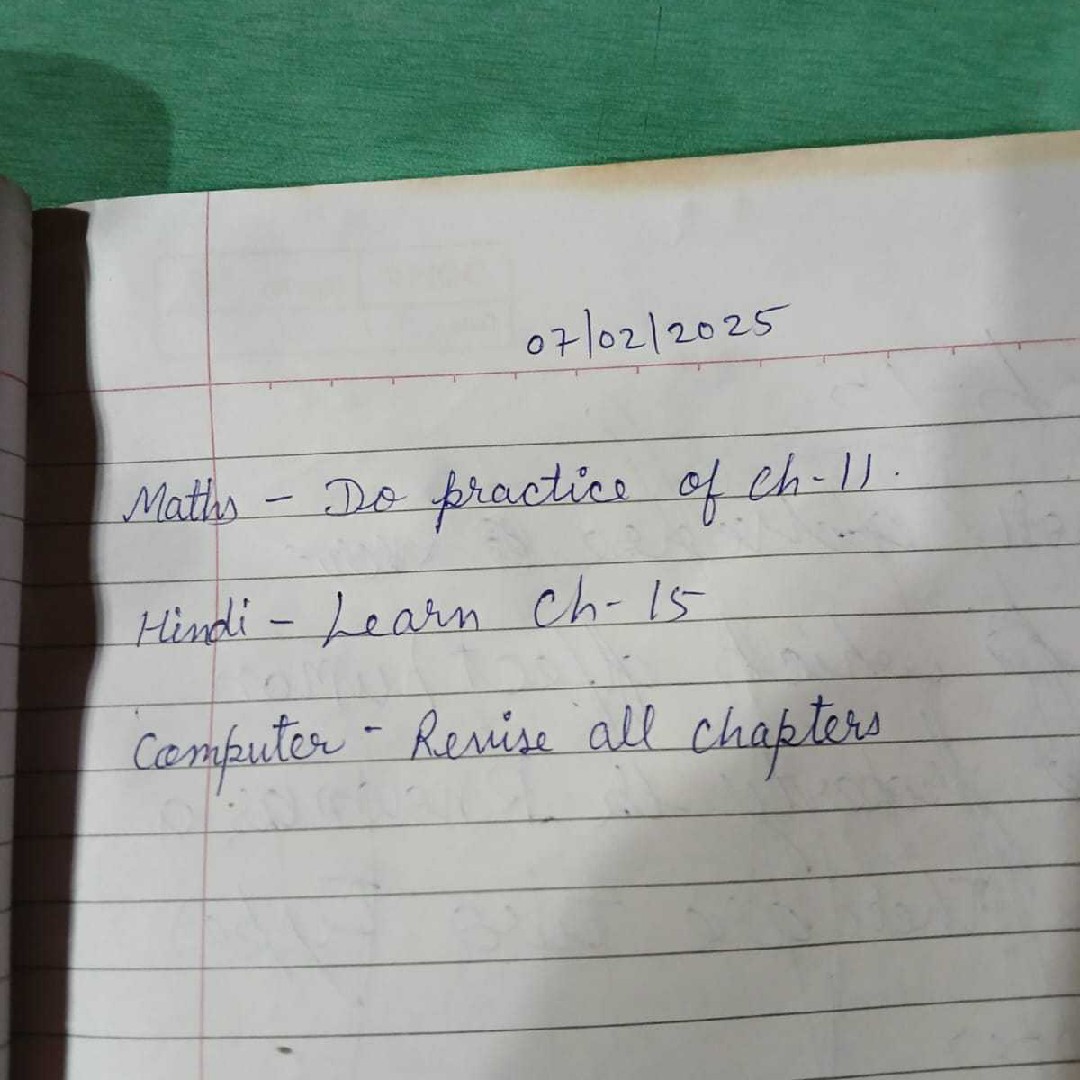 07/02/2025
Maths - Do practice of Ch-11.
Hindi - Learn Ch-15
Computer - Revise all chapters